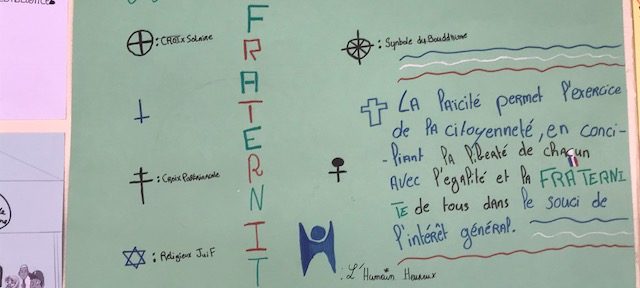 : CROIX Solaire
: Croix Patriarcale
: Religieux Juif
FRATERNIT
: Symbole du Bouddhisme
LA laïcité permet l'exercice
de la citoyenneté, en conci-
-liant la liberté de chacun
AVEC l'égalité et la FRATERNI
TE de tous dans le souci de
l'intérêt général.
: L'Humain Heureux